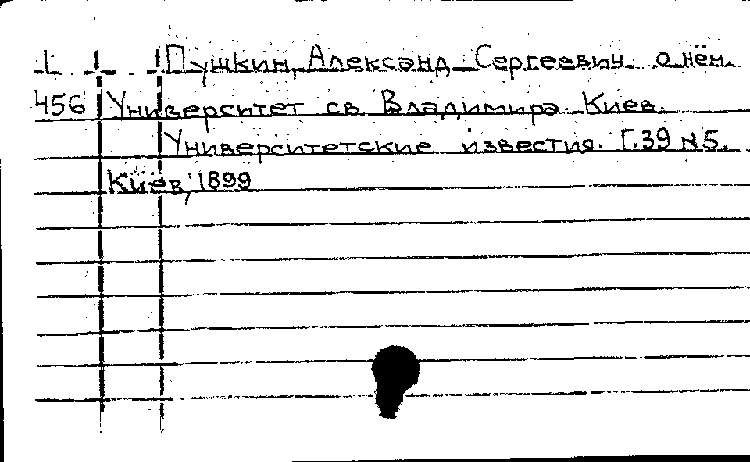 L Пушкин, Александр Сергеевич о нём.
456 Университет св. Владимира. Киев.
Университетские известия. Г.39 №5.
Киев, 1899